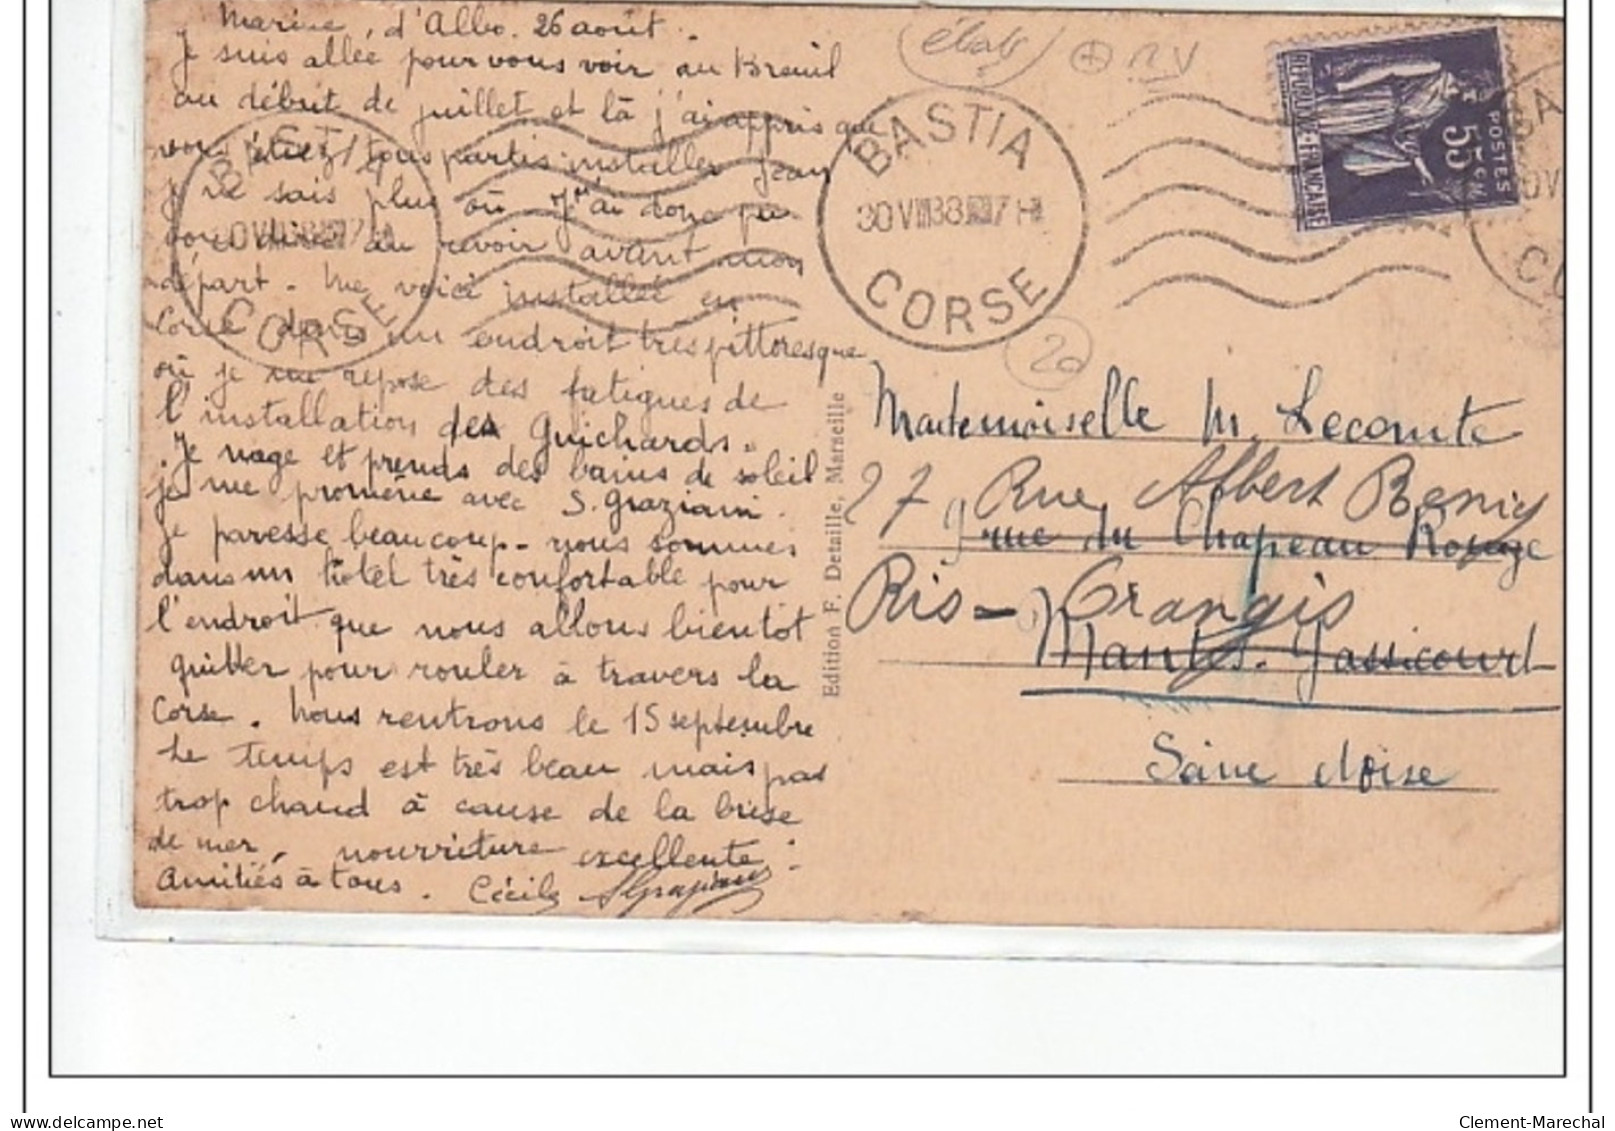 Marine, d'Albo. 26 août.
Je suis allée pour vous voir au Breuil
au début de juillet et là j'ai appris que
vous étiez tous partis installer Jean
je ne sais plus où Je n'ai donc pu
vous dire au revoir avant mon
départ. Me voici installée en
Corse dans un endroit très pittoresque
où je me repose des fatigues de
l'installation des Guichards.
Je nage et prends des bains de soleil
je me promène avec S. Graziani.
Je paresse beaucoup - nous sommes
dans un hôtel très confortable pour
l'endroit que nous allons bientôt
quitter pour rouler à travers la
Corse. Nous rentrons le 15 septembre
Le temps est très beau mais pas
trop chaud à cause de la brise
de mer. nourriture excellente.
Amitiés à tous. Cécile SGraziani
BASTIA
30 VIII 38 17H
CORSE
BASTIA
30 VIII 38 17H
CORSE
POSTES
55c
REPUBLIQUE FRANÇAISE
20
Edition F. Detaille, Marseille
Mademoiselle M. Lecomte
27 Rue Albert Beny
9 rue du Chapeau Rouge
Ris-Orangis
Mantes-Gassicourt
Seine et Oise
www.delcampe.net
Clement-Marechal